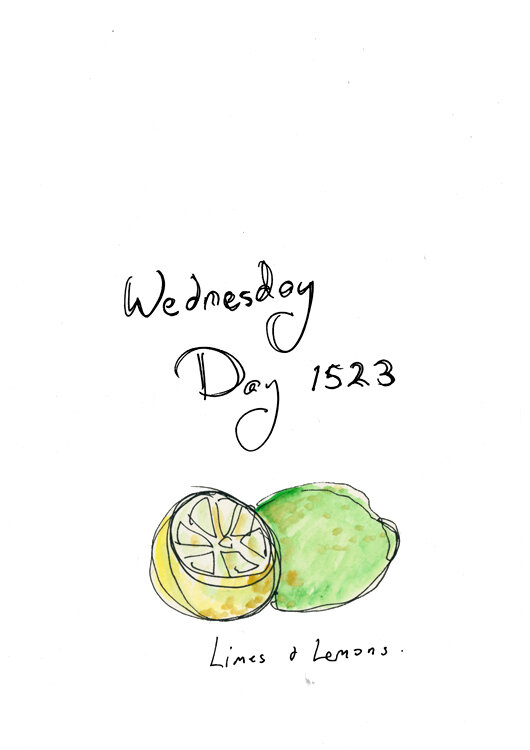 Wednesday
Day 1523
Limes & Lemons.